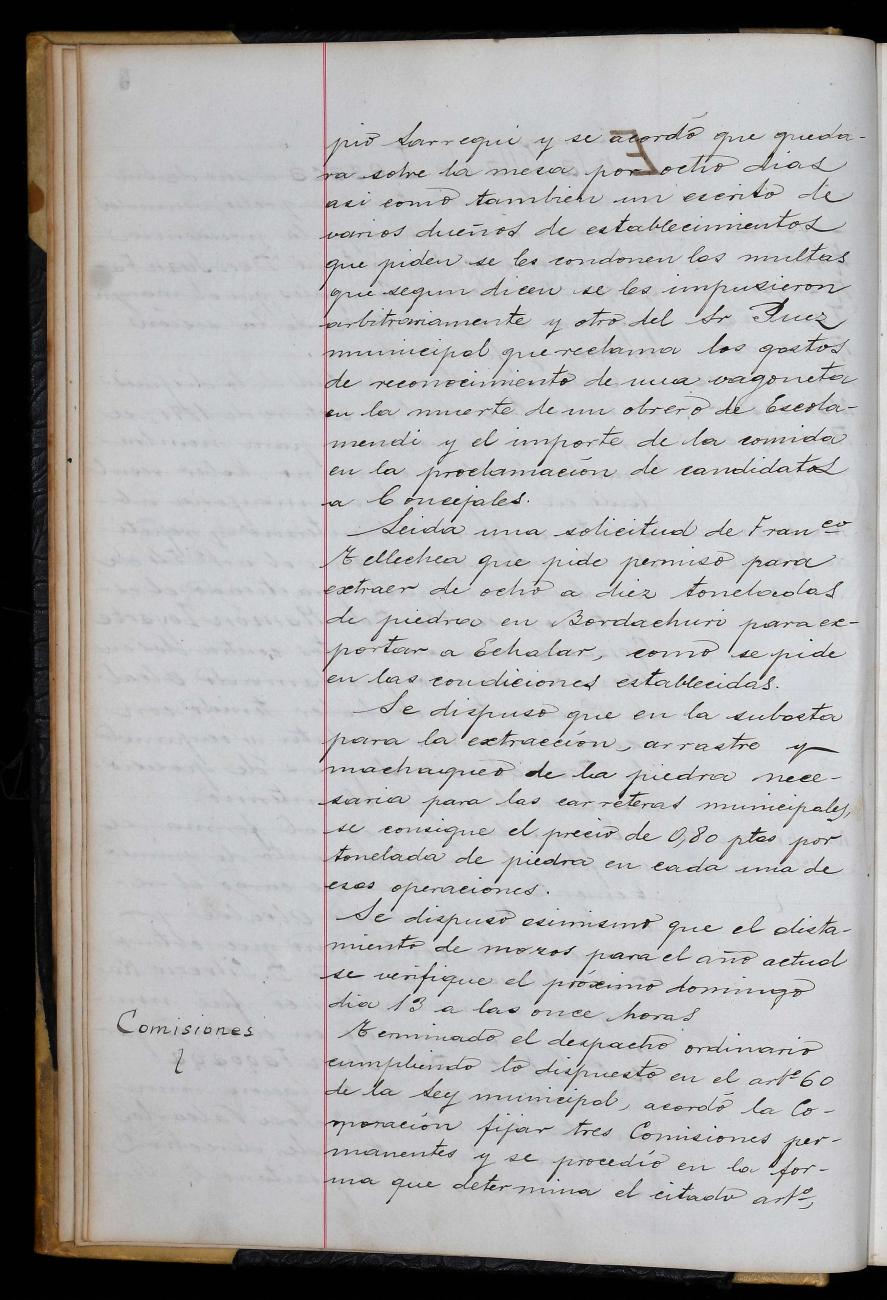 pio Larregui y se acordó que queda-
ra sobre la mesa por ocho dias
asi como tambien un escrito de
varios dueños de establecimientos
que piden se les condonen las multas
que segun dicen se les impusieron
arbitrariamente y otro del Sr Juez
municipal que reclama los gastos
de reconocimiento de una vagoneta
en la muerte de un obrero de Escola-
mendi y el importe de la comida
en la proclamación de candidatos
a Concejales.
Leida una solicitud de Fran.co
Tellechea que pide permiso para
extraer de ocho a diez toneladas
de piedra en Bordachuri para ex-
portar a Echalar, como se pide
en las condiciones establecidas.
Se dispuso que en la subasta
para la extracción, arrastre y
machaqueo de la piedra nece-
saria para las carreteras municipales,
se consigue el precio de 0,80 ptas por
tonelada de piedra en cada una de
esas operaciones.
Se dispuso asimismo que el alista-
miento de mozos para el año actual
se verifique el próximo domingo
dia 13 a las once horas
Comisiones
Terminado el despacho ordinario
cumpliendo lo dispuesto en el artº 60
de la Ley municipal, acordó la Co-
rporación fijar tres Comisiones per-
manentes y se procedió en la for-
ma que determina el citado artº,